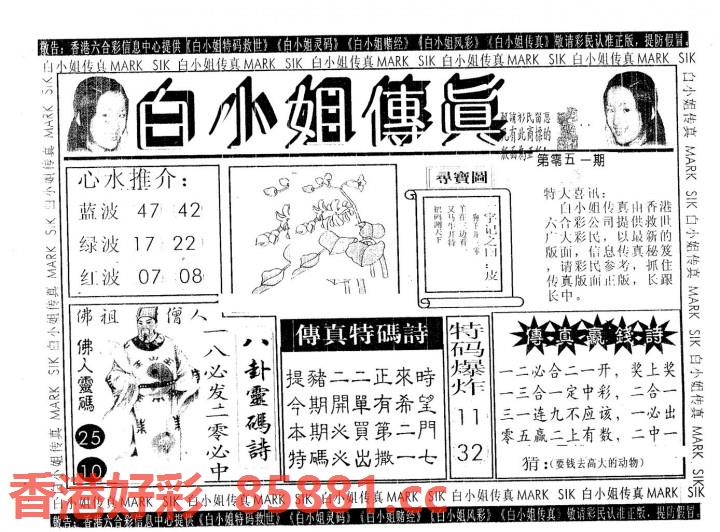 敬告：香港六合彩信息中心提供《白小姐特码救世》《白小姐灵码》《白小姐赌经》《白小姐风彩》《白小姐传真》敬请彩民认准正版，提防假冒。
白小姐传真 MARK SIK 白小姐传真 MARK SIK 白小姐传真 MARK SIK 白小姐传真 MARK SIK 白小姐传真 MARK SIK
白小姐傳眞
第零五一期
心水推介：
蓝波 47 42
绿波 17 22
红波 07 08
尋寶圖
字记之曰：皮
特大喜讯：
白小姐传真由香港
六合彩公司提供救世
广大彩民，以最新的
版面，信息传真秘笈
，请彩民参考，抓住
传真版面正版，长跟
长中。
佛祖僧人
佛人靈碼
25
10
八卦靈碼詩
一八必发二零必中
傳真特碼詩
提豬二二正來時
今期開單有希望
本期必買第二門
特碼火出撒一七
特码爆炸
11
32
傳真贏钱詩
一二必合二一开，奖上奖
一三合一定中彩，二合一
三一连九不应该，一必出
零五赢二上有数，二中一
猜：(要钱去高大的动物)
香港好彩 85881.cc
白小姐传真 MARK SIK 白小姐传真 MARK SIK 白小姐传真 MARK SIK 白小姐传真 MARK SIK
敬告：香港六合彩信息中心提供《白小姐特码救世》《白小姐灵码》《白小姐赌经》《白小姐风彩》《白小姐传真》敬请彩民认准正版，提防假冒。